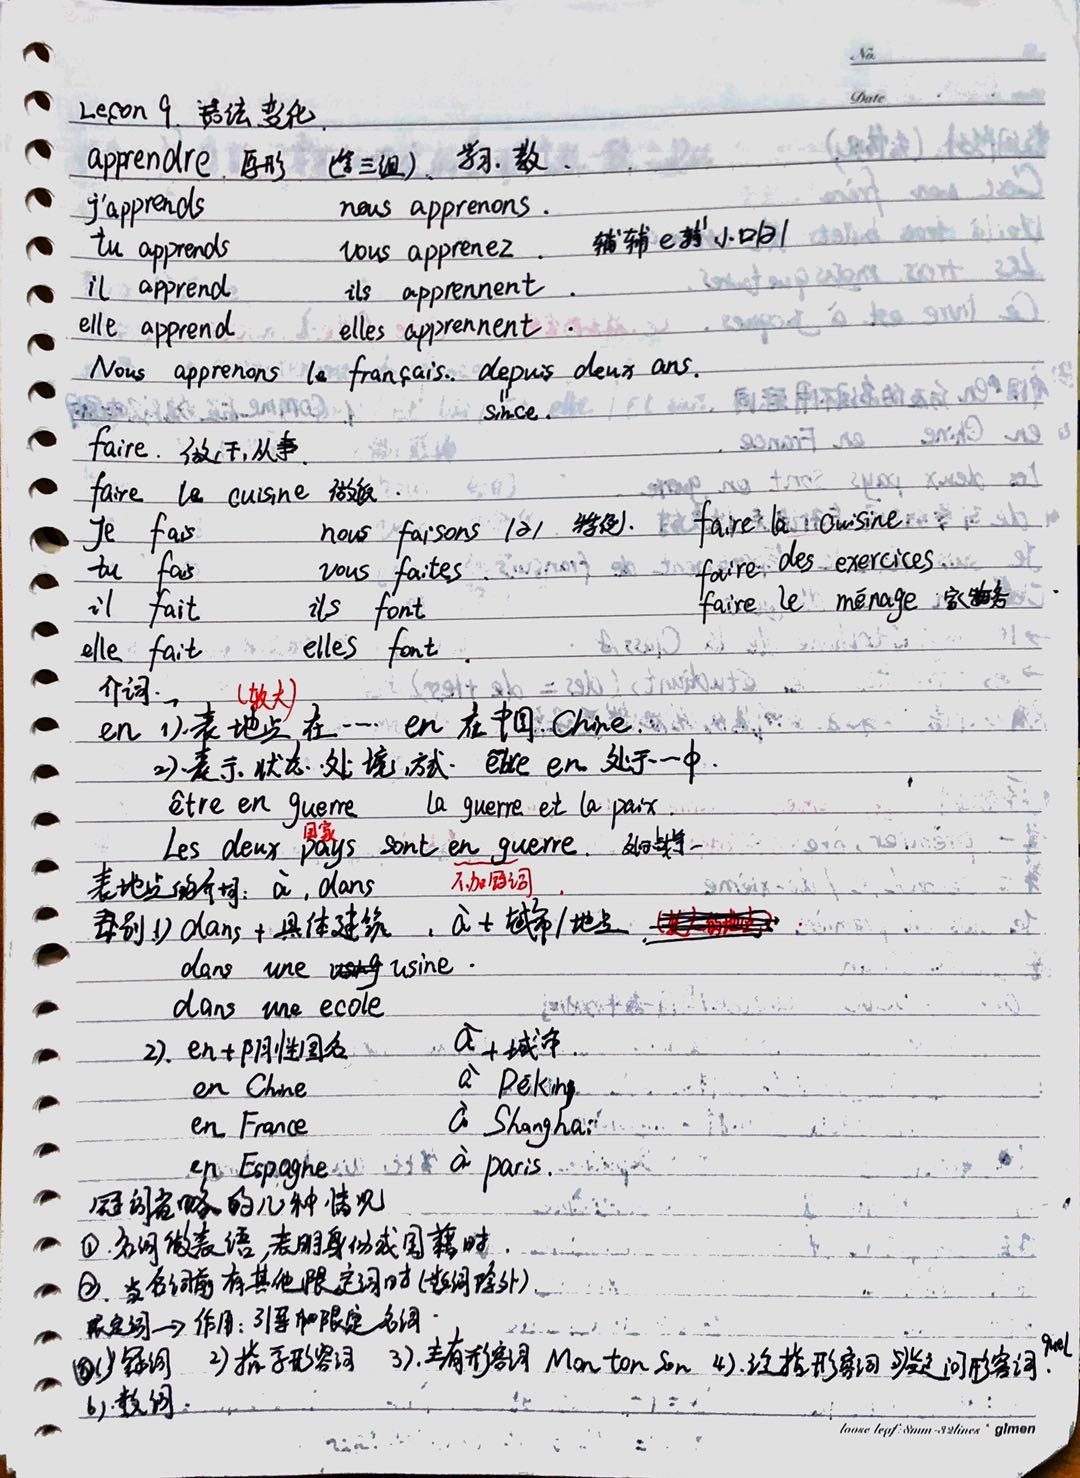 No.
Date
Leçon 9 语法变化
apprendre 原形 (第三组) 学习.教.
j'apprends nous apprenons.
tu apprends vous apprenez. 辅辅e辅 小口[ə]
il apprend ils apprennent.
elle apprend elles apprennent.
Nous apprenons le français. depuis deux ans.
since.
faire. 做,干,从事
faire la cuisine 做饭.
Je fais nous faisons [ə] 特例. faire la cuisine
tu fais vous faites. faire des exercices
il fait ils font faire le ménage 家务
elle fait elles font.
介词. (较大)
en 1).表地点 在…… en 在中国 Chine.
2).表示.状态.处境,方式. être en 处于…中.
être en guerre la guerre et la paix.
国家
Les deux pays sont en guerre.
表地点的介词: à, dans 不加冠词
类别 1) dans + 具体建筑, à + 城市/地点
dans une usine.
dans une ecole
2). en + 阴性国名 à + 城市.
en Chine à Péking
en France à Shanghai
en Espagne à paris.
冠词省略的几种情况
①.名词做表语,表明身份或国籍时.
②.当名词前有其他限定词时(数词除外).
限定词→作用:引导和限定名词.
1)冠词 2)指示形容词 3).主有形容词 Mon ton Son 4).泛指形容词 5)疑问形容词. quel
6).数词.
loose leaf: 8mm-32lines glmen